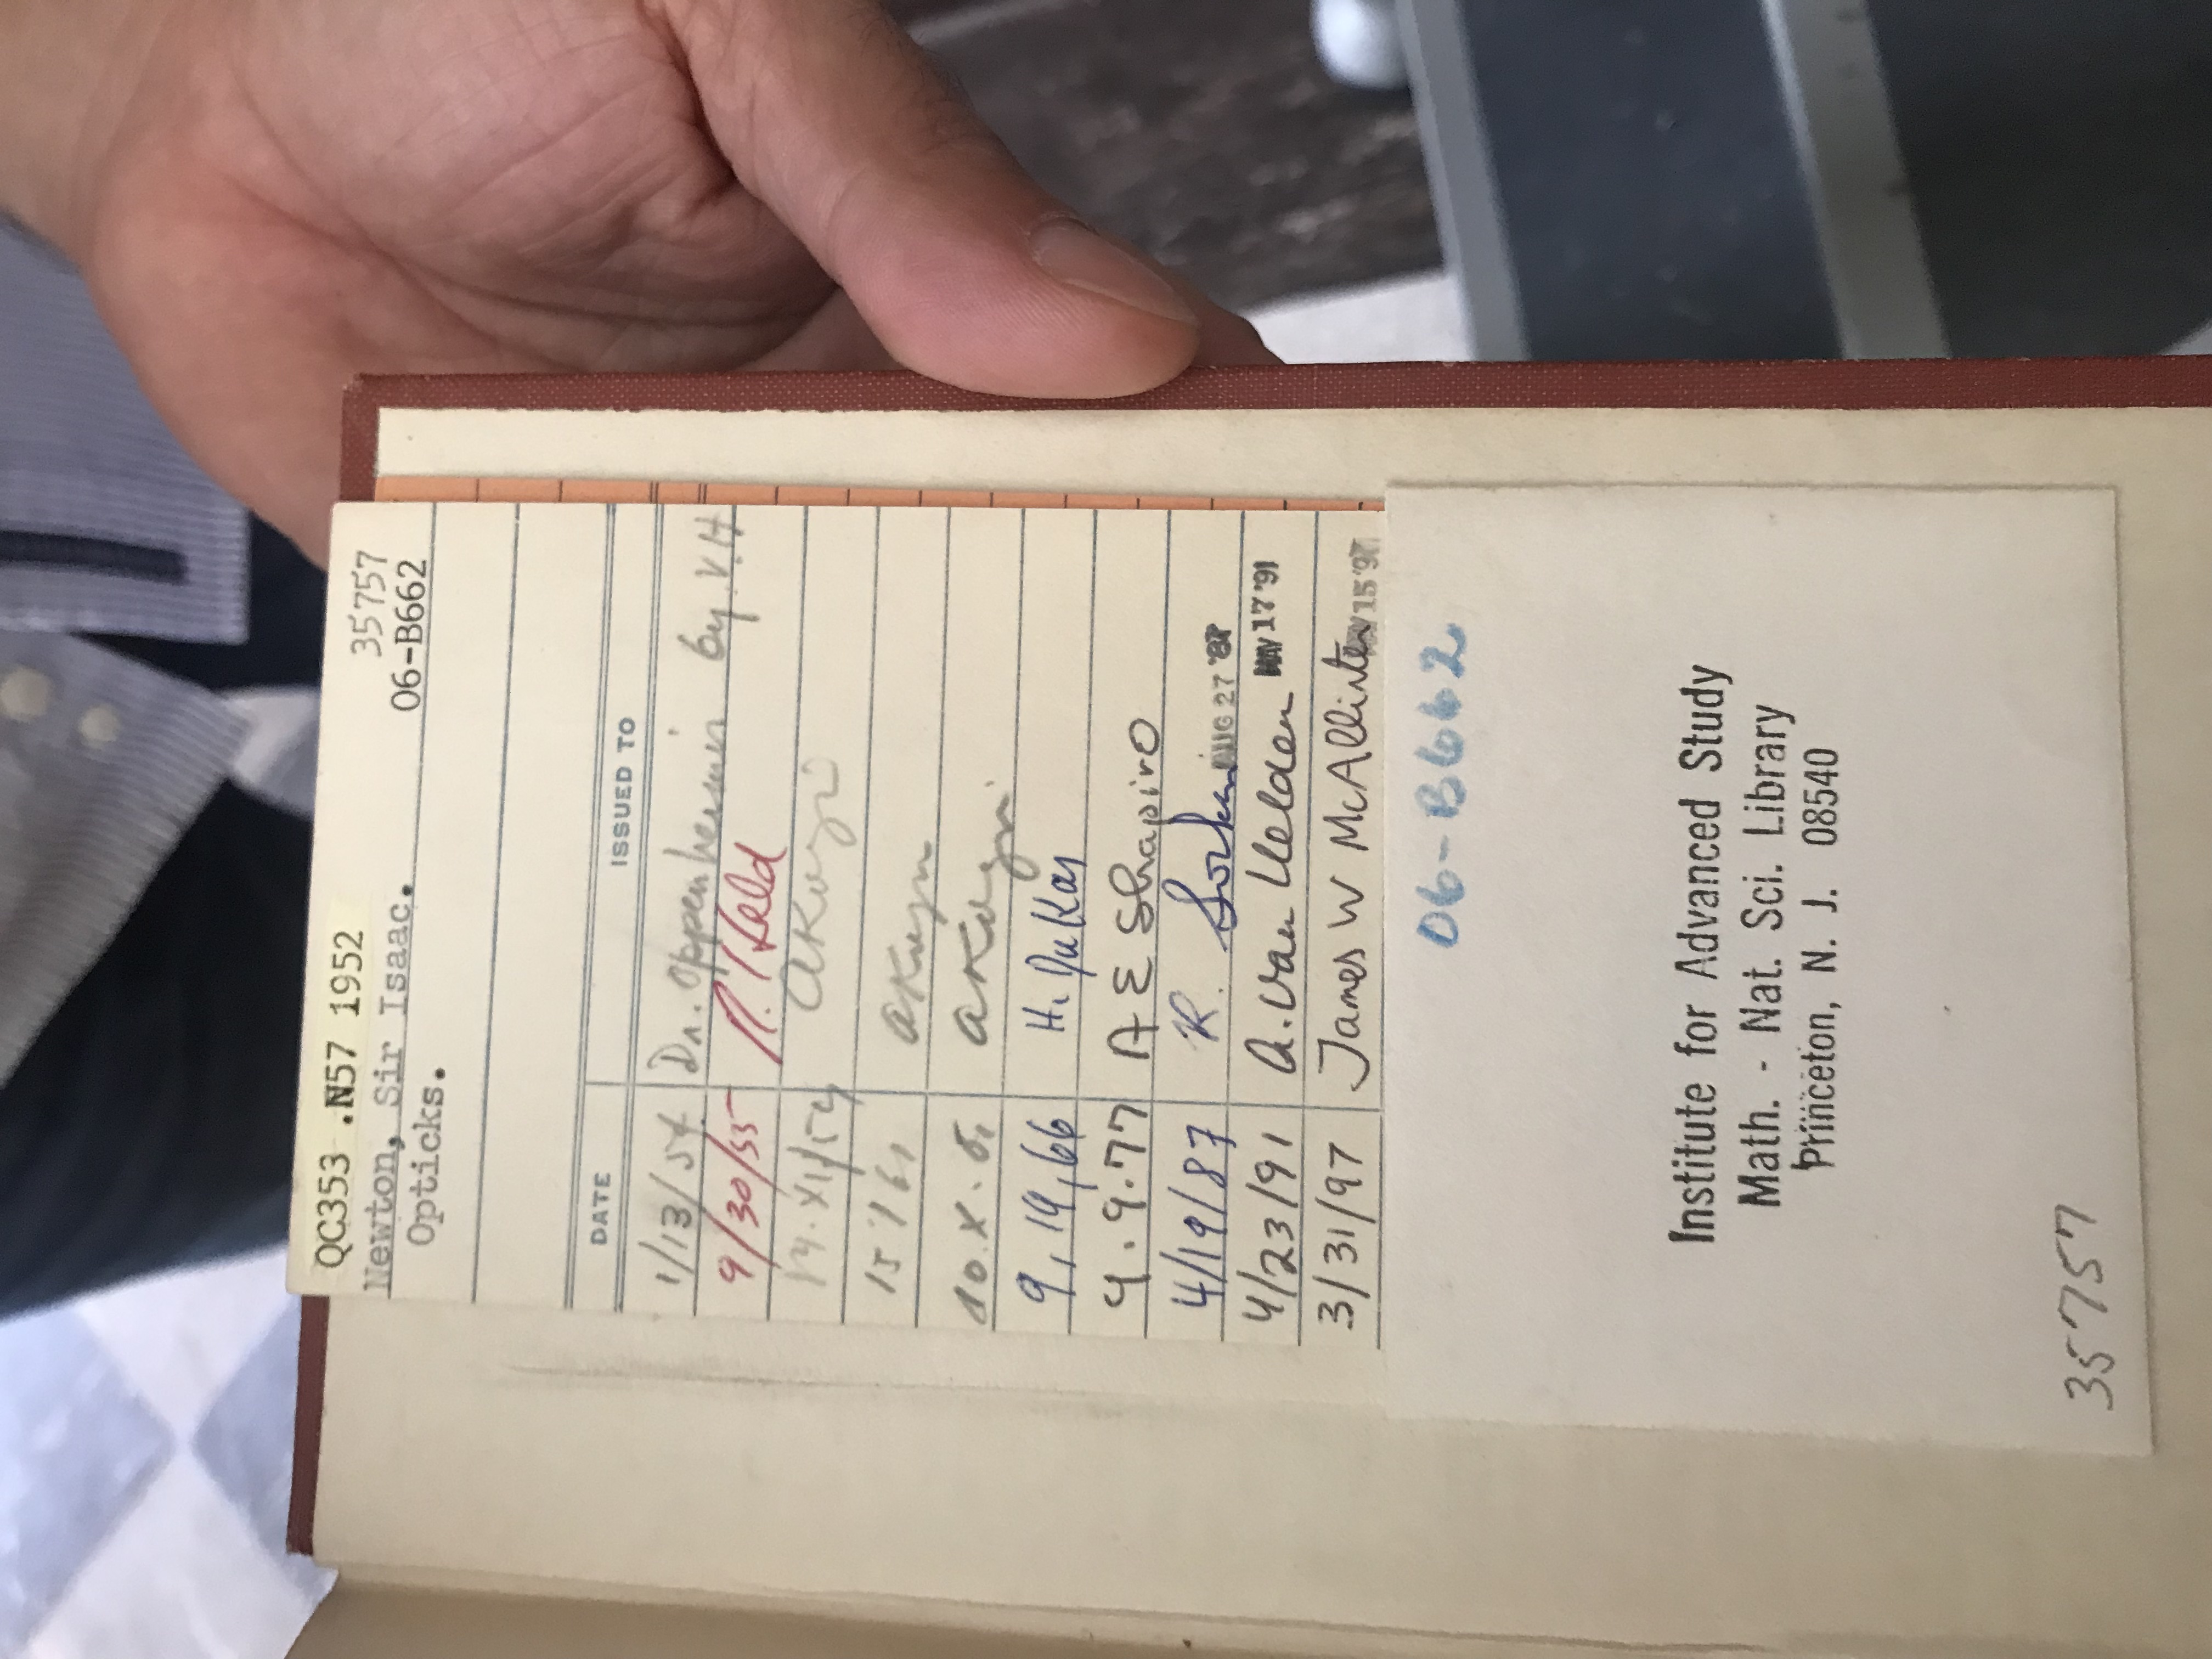 QC353 .N57 1952
35757
Newton, Sir Isaac.
06-B662
Opticks.
DATE ISSUED TO
1/13/54 Dr. Oppenheimer by V.H
9/30/55 Held
AKoyré
15 61 AKoyré
10.X. AKoyré
9,19,66 H. DuKas
9.9.77 A E ShapirO
4/19/87 R. Sorkin AUG 27 '87
4/23/91 A. Van Helden MAY 17 '91
3/31/97 James W McAllister MAY 15 '97
06-B662
Institute for Advanced Study
Math. - Nat. Sci. Library
Princeton, N. J. 08540
35757